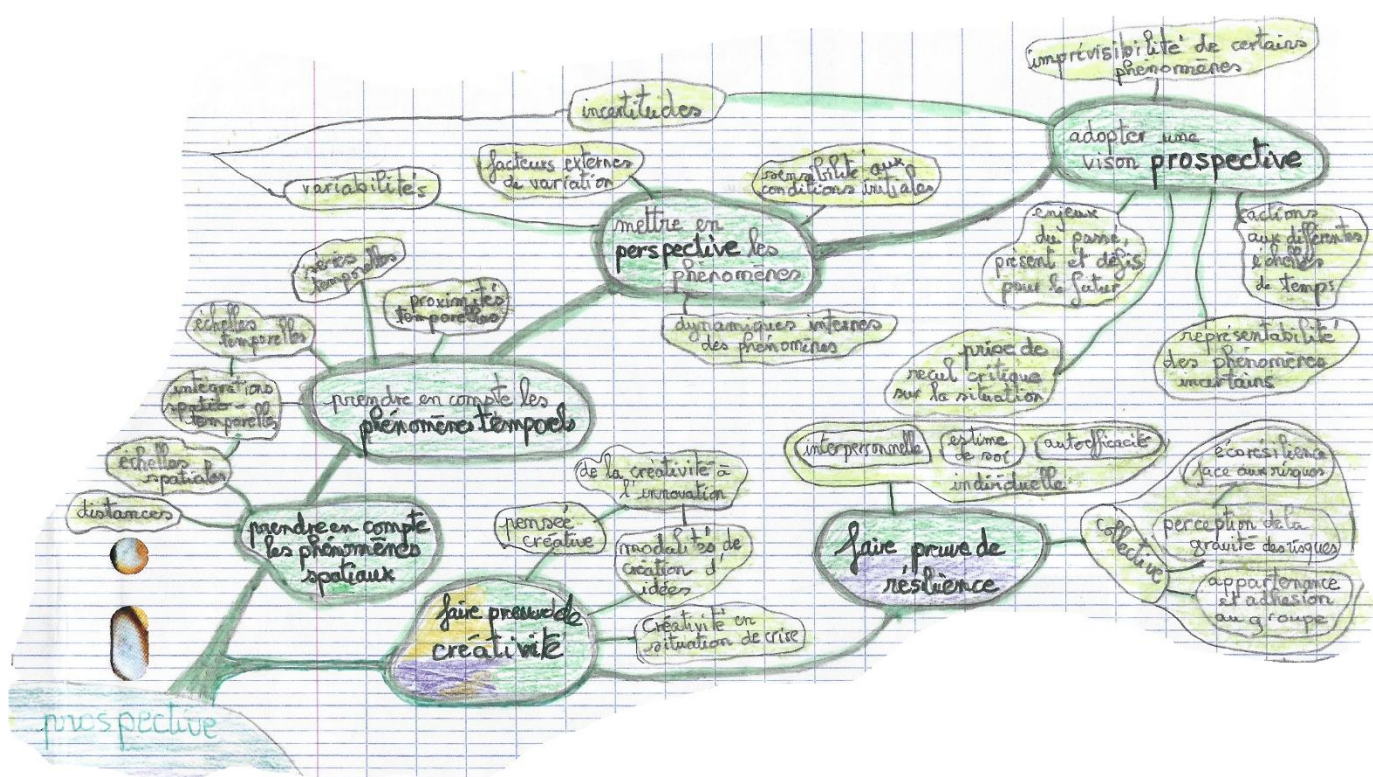 imprévisibilité de certains
phénomènes
incertitudes
adopter une
vison prospective
facteurs externes
de variation
sensibilité aux
conditions initiales
variabilités
mettre en
perspective les
phénomènes
enjeux
du passé,
présent et défis
pour le futur
actions
aux différentes
échelles
de temps
séries
temporelles
proximités
temporelles
échelles
temporelles
dynamiques internes
des phénomènes
représentabilité
des phénomènes
incertains
prise de
recul critique
sur la situation
intégrations
spatio-
temporelles
prendre en compte les
phénomènes temporels
interpersonnelle
estime
de soi
autoefficacité
individuelle
écorésilience
face aux risques
échelles
spatiales
de la créativité à
l'innovation
distances
pensée
créative
prendre en compte
les phénomènes
spatiaux
modalités de
création d'
idées
faire preuve de
résilience
collective
perception de la
gravité des risques
appartenance
et adhésion
au groupe
faire preuve de
créativité
Créativité en
situation de crise
prospective